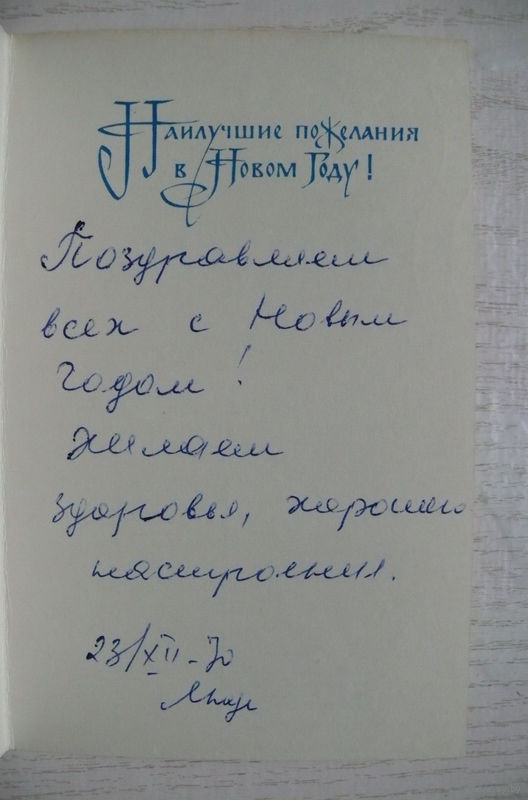 Наилучшие пожелания
в Новом Году!
Поздравляем
всех с Новым
годом!
Желаем
здоровья, хорошего
настроения.
23/XII-70